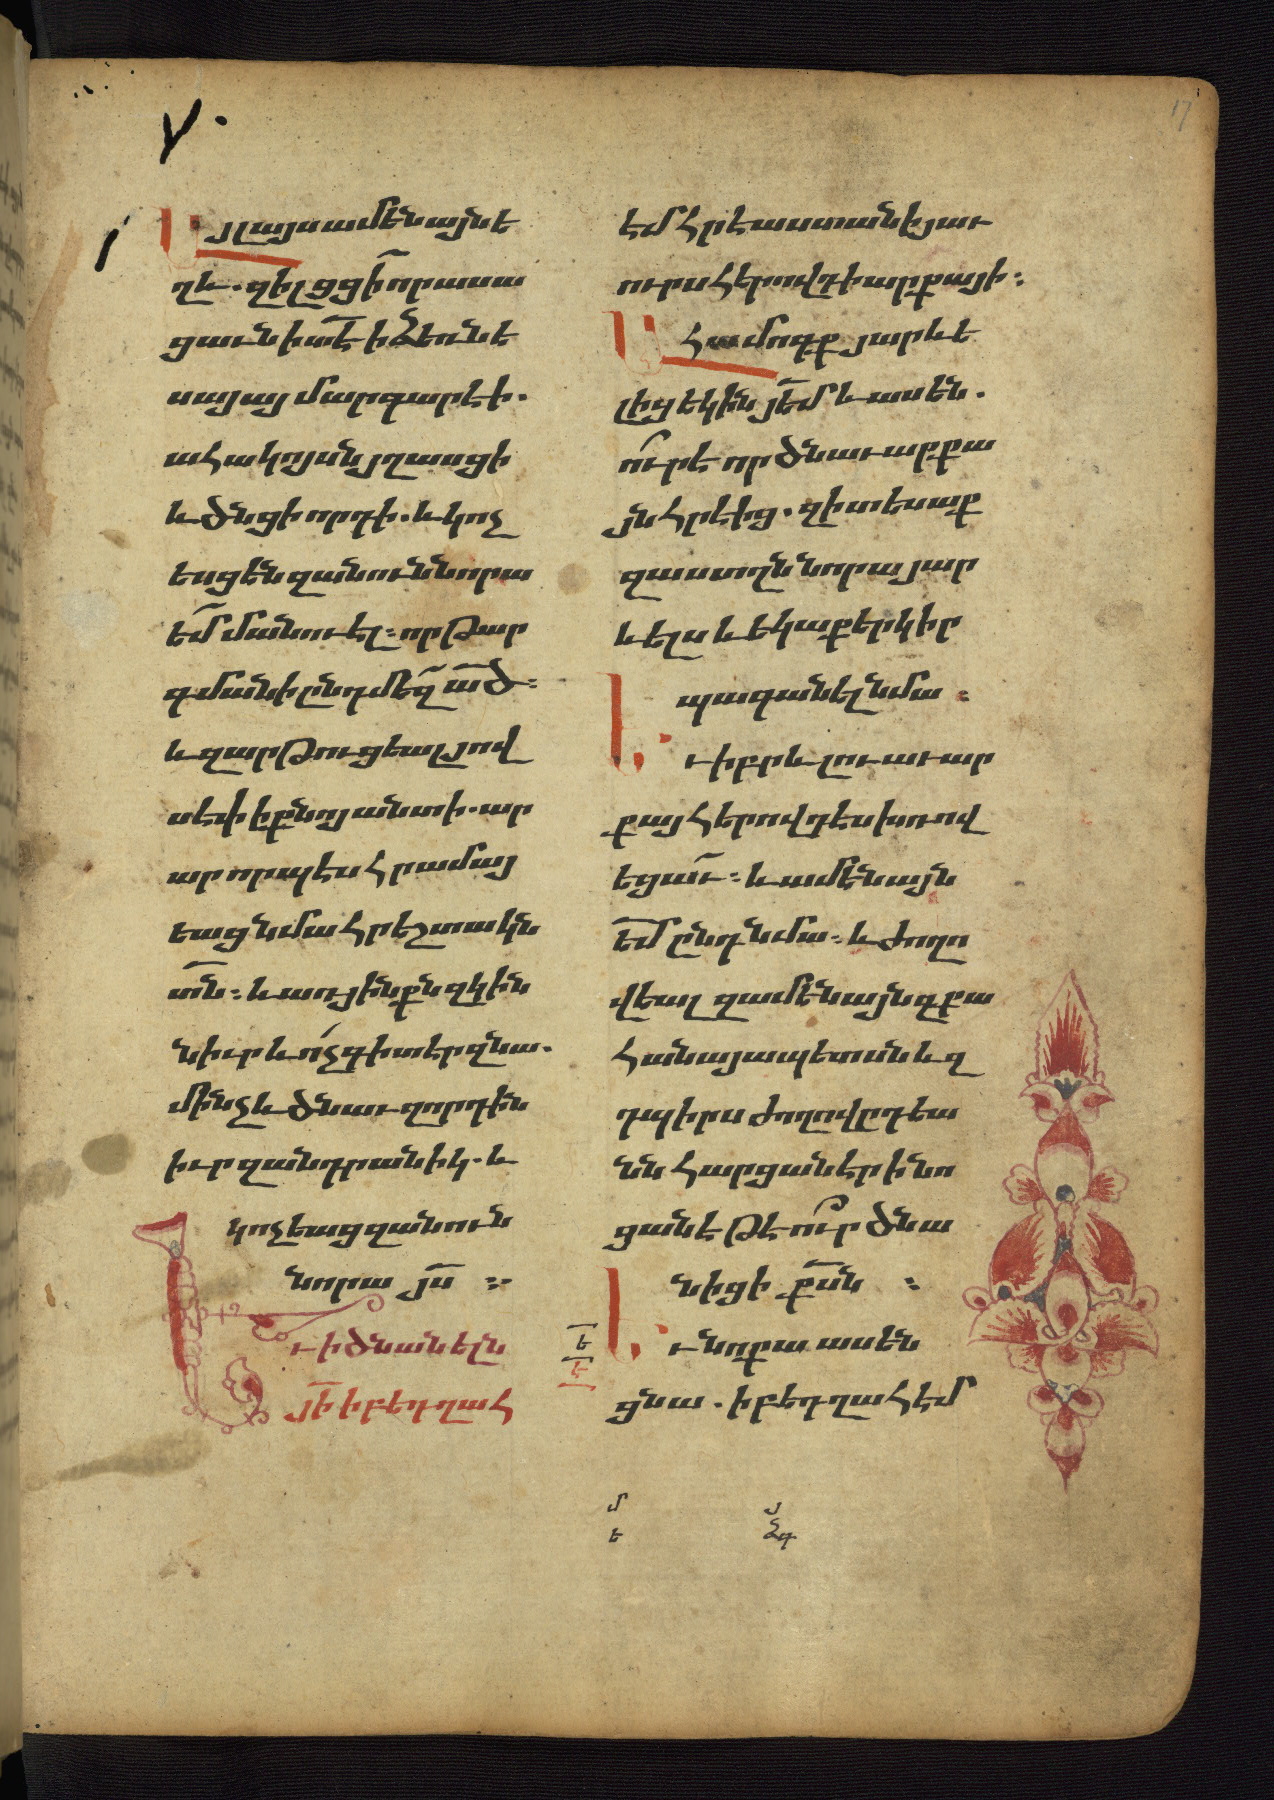 Այլ այս ամենայն ե
ղև. զի լցցի որ ասա
ցաւն ի տէ ի ձեռն ե
սայայ մարգարէի.
ահա կոյսն յղասցի
և ծնցի որդի. և կոչ
եսցեն զանուն նորա
էմմանուէլ։ որ թար
գմանի ընդ մեզ ած։
և զարթուցեալ յով
սէփ ի քնոյ անտի. ար
ար որպէս հրամայ
եաց նմա հրեշտակն
տն։ և առ յինքն զկին
իւր և ոչ գիտէր զնա.
մինչև ծնաւ զորդին
իւր զանդրանիկ. և
կոչեաց զանուն
նորա յս ։
Եւ ի ծնանելն
յի ի բեդղահ
էմ հրէաստանի յաւ
ուրս հերովդի արքայի։
Ահա մոգք յարևե
լից եկին յէմ և ասեն.
ուր է որ ծնաւ արքա
յն հրէից. զի տեսաք
զաստղն նորա յար
ևելս և եկաք երկիր
պագանել նմա ։
Եւ իբրև լուաւ ար
քայ հերովդէս խռով
եցաւ։ և ամենայն
էմ ընդ նմա։ և ժողո
վեալ զամենայն զքա
հանայապետսն և զ
դպիրս ժողովրդեա
նն հարցանէր ի նո
ցանէ թէ ուր ծնա
նիցի քսն ։
Եւ նոքա ասեն
ցնա. ի բեդղահէմ